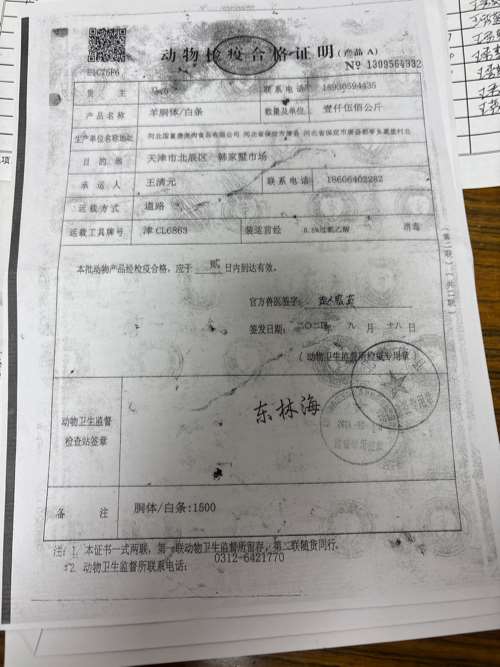 动物检疫合格证明（产品 A）
№ 1309564332
货 主
联系电话 18930594435
产品名称 羊胴体/白条 数量及单位 壹仟伍佰公斤
生产单位名称地址
目的地 天津市北辰区 韩家墅市场
承运人 王清元 联系电话 18606402282
运载方式 道路
运载工具牌号 津 CL6863 装运前经 0.5%过氧乙酸 消毒
本批动物产品经检疫合格，应于 贰 日内到达有效。
官方兽医签字：
签发日期： 九 月 十八 日
（动物卫生监督所检疫专用章
动物卫生监督
检查站签章
东林海
备 注 胴体/白条:1500
注：1. 本证书一式两联，第一联动物卫生监督所留存，第二联随货同行。
2. 动物卫生监督所联系电话：0312-6421770